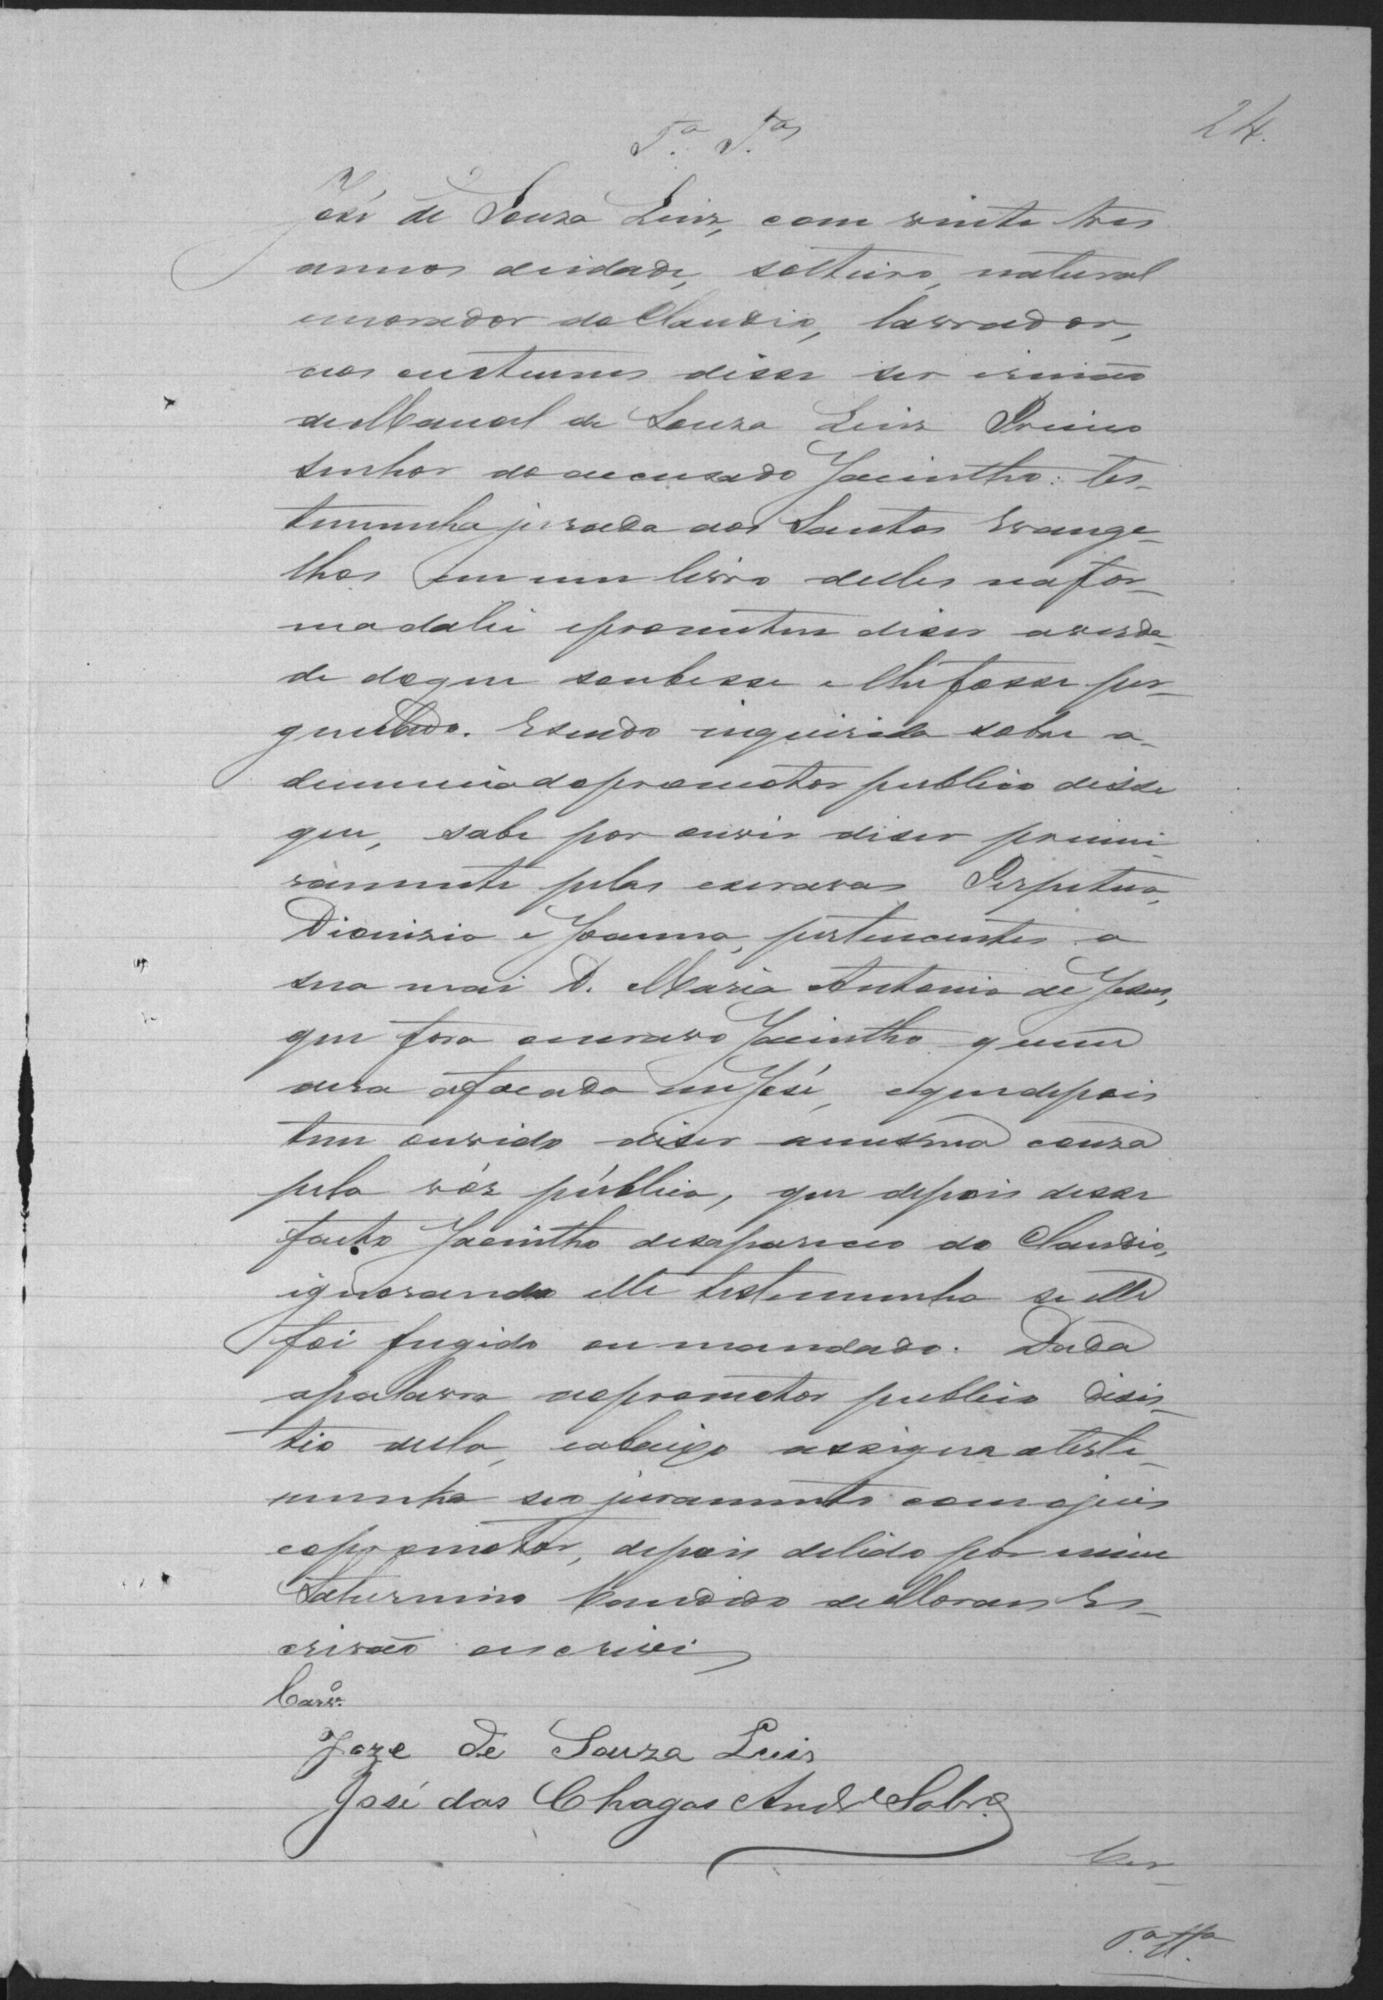 24.
5.ª T.as
José de Souza Luiz, com vinte tres
annos deidade, solteiro, natural
emorador do Claudio, lavrador,
aos custumes disse ser irmão
de Manoel de Souza Luiz Primo
senhor do accusado Jacintho: tes-
temunha jurada aos Santos Evange-
lhos em um livro delles na for-
ma dalei eprometeu diser averda-
de doque soubesse e lhe fosse per-
guntado. Esendo inquirida sobre a
denuncia do promotor publico disse
que, sabe por ouvir diser primei-
ramente pelas escravas Perpetua,
Dionizia e Joanna, pertencentes a
sua mai D. Maria Antonia de Jesus,
que fora o escravo Jacintho quem
dera afacada em José, eque depois
tem ouvido diser amesma couza
pela vóz pública, que depois desse
facto Jacintho desapareceo do Claudio,
ignorando elle testemunha se elle
foi fugido ou mandado. Dada
apalavra aopromotor publico desis-
tio della, eabaixo assigna ateste-
munha seo juramento com ojuis
eopromotor, depois delido por mim
Saturnino Candido de Moraes Es-
crivão oescrivi
Carvº.
Joze de Souza Luis
José das Chagas Andrº Sobrº
Cer-
5.ª Tª.